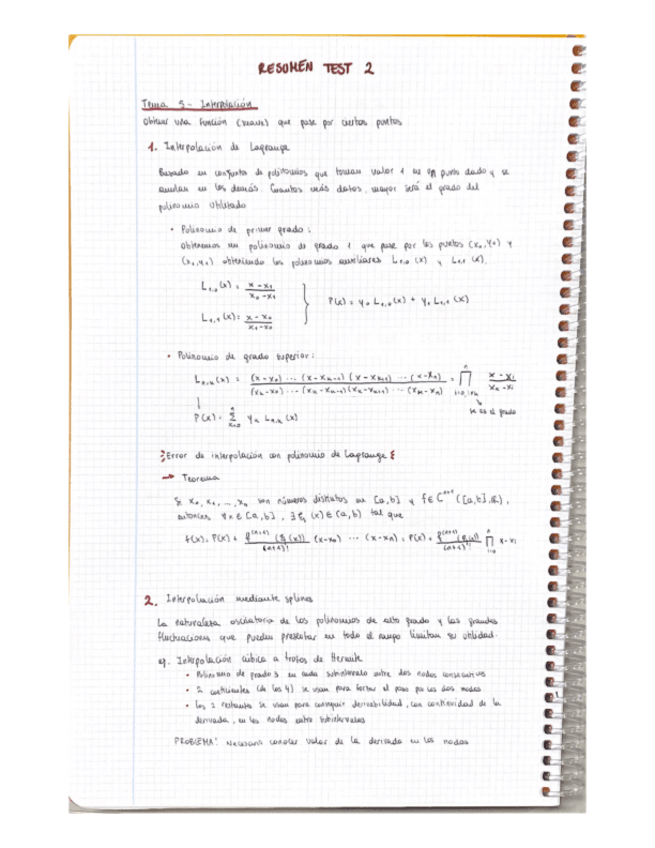 RESUMEN TEST 2
Tema 5 - Interpolación
Obtener una función (suave) que pase por ciertos puntos
1. Interpolación de Lagrange
Basado en conjunto de polinomios que toman valor 1 en un punto dado y se
anulan en los demás. Cuantos más datos, mayor será el grado del
polinomio utilizado
• Polinomio de primer grado:
obtenemos un polinomio de grado 1 que pase por los puntos (x₀,y₀) y
(x₁,y₁) obteniendo los polinomios auxiliares L₁,₀(x) y L₁,₁(x).
L₁,₀(x) = (x - x₁)/(x₀ - x₁)
P(x) = y₀ L₁,₀(x) + y₁ L₁,₁(x)
L₁,₁(x) = (x - x₀)/(x₁ - x₀)
• Polinomio de grado superior:
Lₙ,ₖ(x) = (x-x₀) ··· (x-xₖ₋₁)(x-xₖ₊₁) ··· (x-xₙ) / (xₖ-x₀) ··· (xₖ-xₖ₋₁)(xₖ-xₖ₊₁) ··· (xₖ-xₙ) = ∏ⁿ i=0, i≠k (x-xᵢ)/(xₖ-xᵢ)
es el grado
P(x) = Σⁿ k=0 yₖ Lₙ,ₖ(x)
Error de interpolación con polinomio de Lagrange
→ Teorema
Si x₀, x₁, ..., xₙ son números distintos en [a,b] y f ∈ Cⁿ⁺¹([a,b],ℝ),
entonces ∀x ∈ [a,b], ∃ ξ(x) ∈ (a,b) tal que
f(x) = P(x) + f⁽ⁿ⁺¹⁾(ξ(x))/(n+1)! (x-x₀) ··· (x-xₙ) = P(x) + f⁽ⁿ⁺¹⁾(ξ(x))/(n+1)! ∏ⁿ i=0 x-xᵢ
2. Interpolación mediante splines
La naturaleza oscilatoria de los polinomios de alto grado y las grandes
fluctuaciones que pueden presentar en todo el rango limitan su utilidad.
Interpolación cúbica a trozos de Hermite
• Polinomio de grado 3 en cada subintervalo entre dos nodos consecutivos
• 2 coeficientes (de los 4) se usan para forzar el paso por los dos nodos
• los 2 restantes se usan para conseguir derivabilidad, con continuidad de la
derivada, en los nodos entre subintervalos
PROBLEMA! Necesario conocer valor de la derivada en los nodos
1